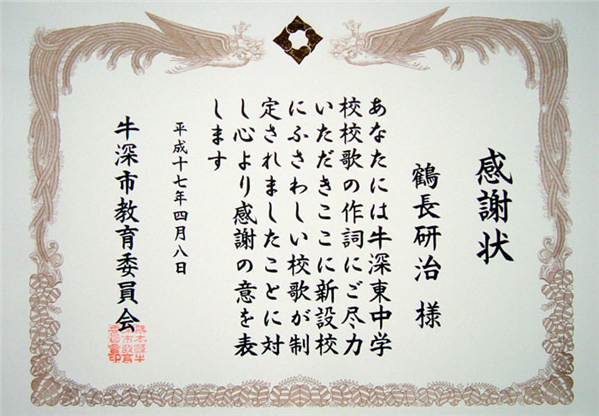 感謝状
鶴長研治 様
あなたには牛深東中学
校校歌の作詞にご尽力
いただきここに新設校
にふさわしい校歌が制
定されましたことに対
し心より感謝の意を表
します
平成十七年四月八日
牛深市教育委員会